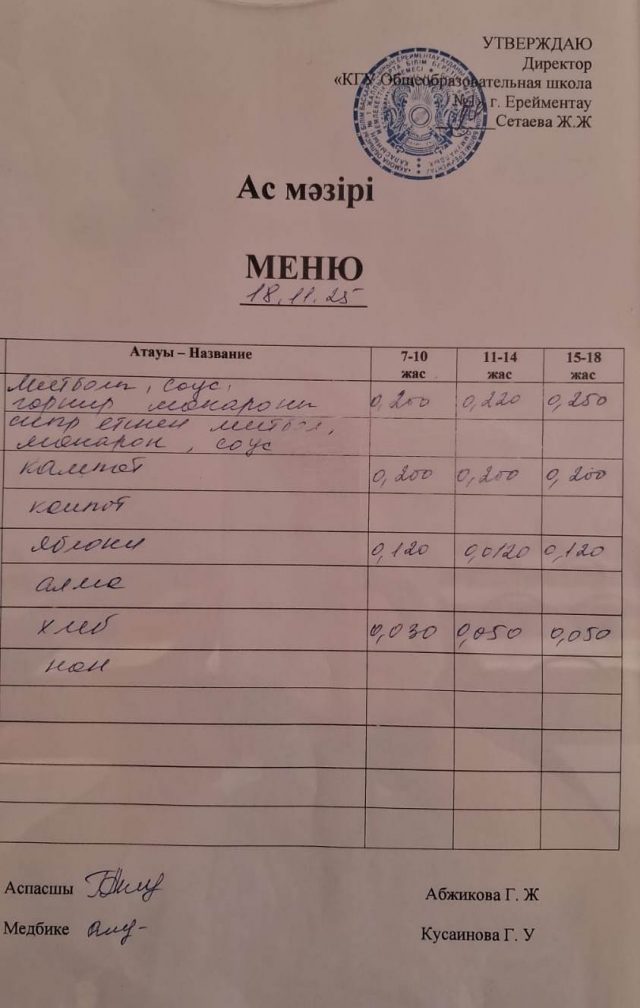 УТВЕРЖДАЮ
Директор
«КГУ Общеобразовательная школа
№1» г. Ерейментау
Сетаева Ж.Ж
Ас мәзірі
МЕНЮ
18.11.25
Атауы – Название 7-10 жас 11-14 жас 15-18 жас
Митболы, соус,
горнир макароны 0,200 0,220 0,250
сиыр етінен митбол,
макарон, соус
кампот 0,200 0,200 0,200
компот
яблоки 0,120 0,0120 0,120
алма
хлеб 0,030 0,050 0,050
нан
Аспасшы Абжикова Г. Ж
Медбике Кусаинова Г. У